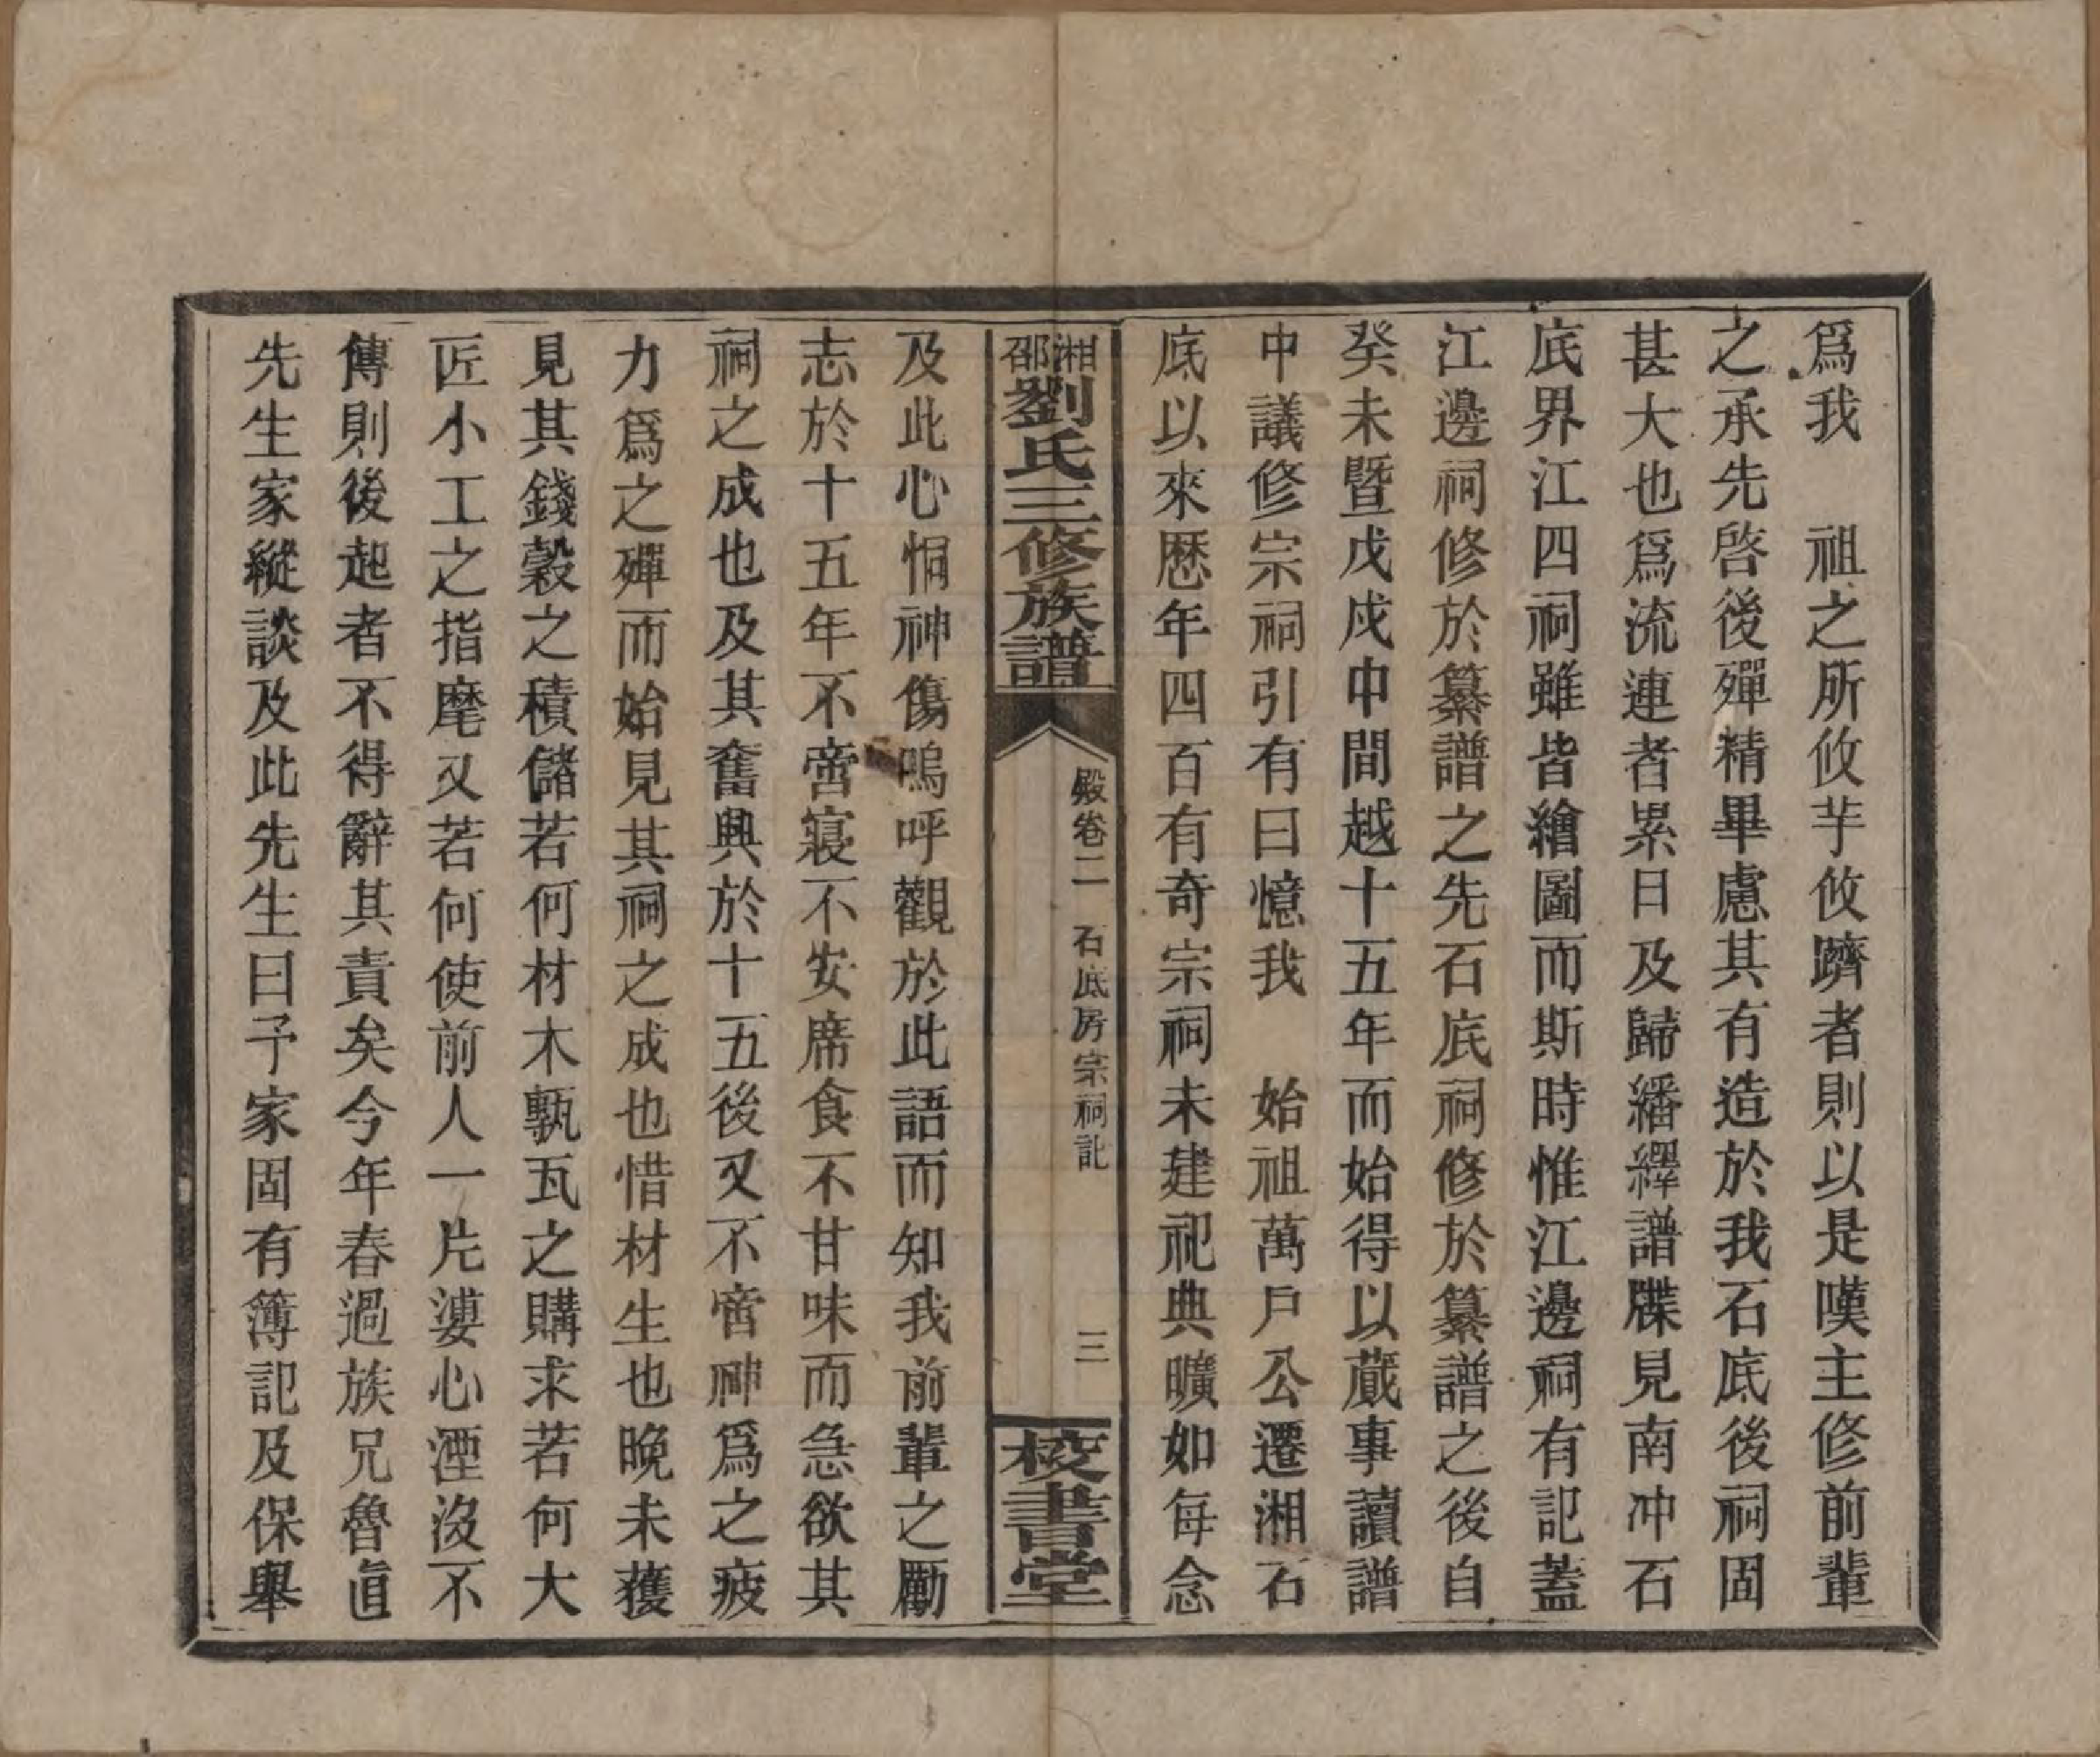 爲我　祖之所攸芋攸躋者則以是嘆主修前輩
之承先啓後殫精畢慮其有造於我石底後祠固
甚大也爲流連者累日及歸繙繹譜牒見南冲石
底界江四祠雖皆繪圖而斯時惟江邊祠有記蓋
江邊祠修於纂譜之先石底祠修於纂譜之後自
癸未暨戊戌中間越十五年而始得以蕆事讀譜
中議修宗祠引有曰憶我　始祖萬戶公遷湘石
底以來歷年四百有奇宗祠未建祀典曠如每念
湘邵劉氏三修族譜
殿卷二　石底房宗祠記
三
校書堂
及此心恫神傷嗚呼觀於此語而知我前輩之勵
志於十五年不啻寢不安席食不甘味而急欲其
祠之成也及其奮興於十五後又不啻神爲之疲
力爲之殫而始見其祠之成也惜材生也晚未獲
見其錢穀之積儲若何材木甎瓦之購求若何大
匠小工之指麾又若何使前人一片婆心湮沒不
傳則後起者不得辭其責矣今年春過族兄魯直
先生家縱談及此先生曰予家固有簿記及保舉